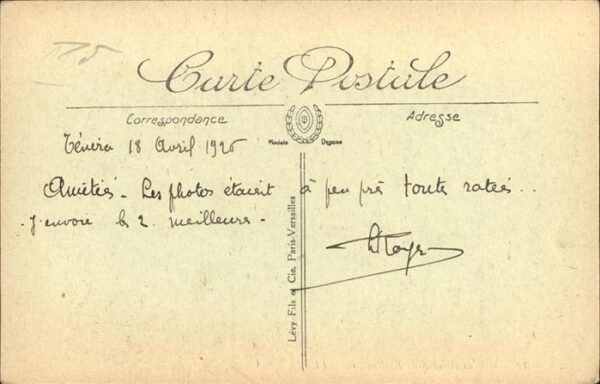 75
Carte Postale
Correspondance
Adresse
Modèle Déposé
18 Avril 1926
Amitiés - Les photos étaient à peu près toute ratées..
J'envoie les 2 meilleures -
Lévy Fils et Cie, Paris-Versailles